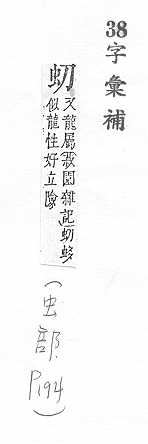 38字彙補
又龍屬菽園雜記
似龍性好立險
(虫部
P194)